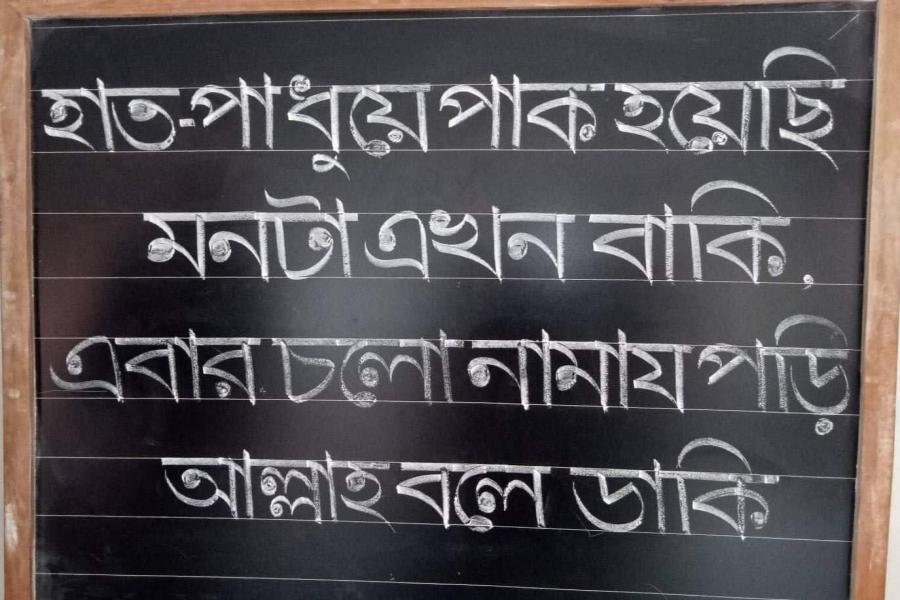 হাত-পা ধুয়ে পাক হয়েছি
মনটা এখন বাকি,
এবার চলো নামায পড়ি
আল্লাহ বলে ডাকি